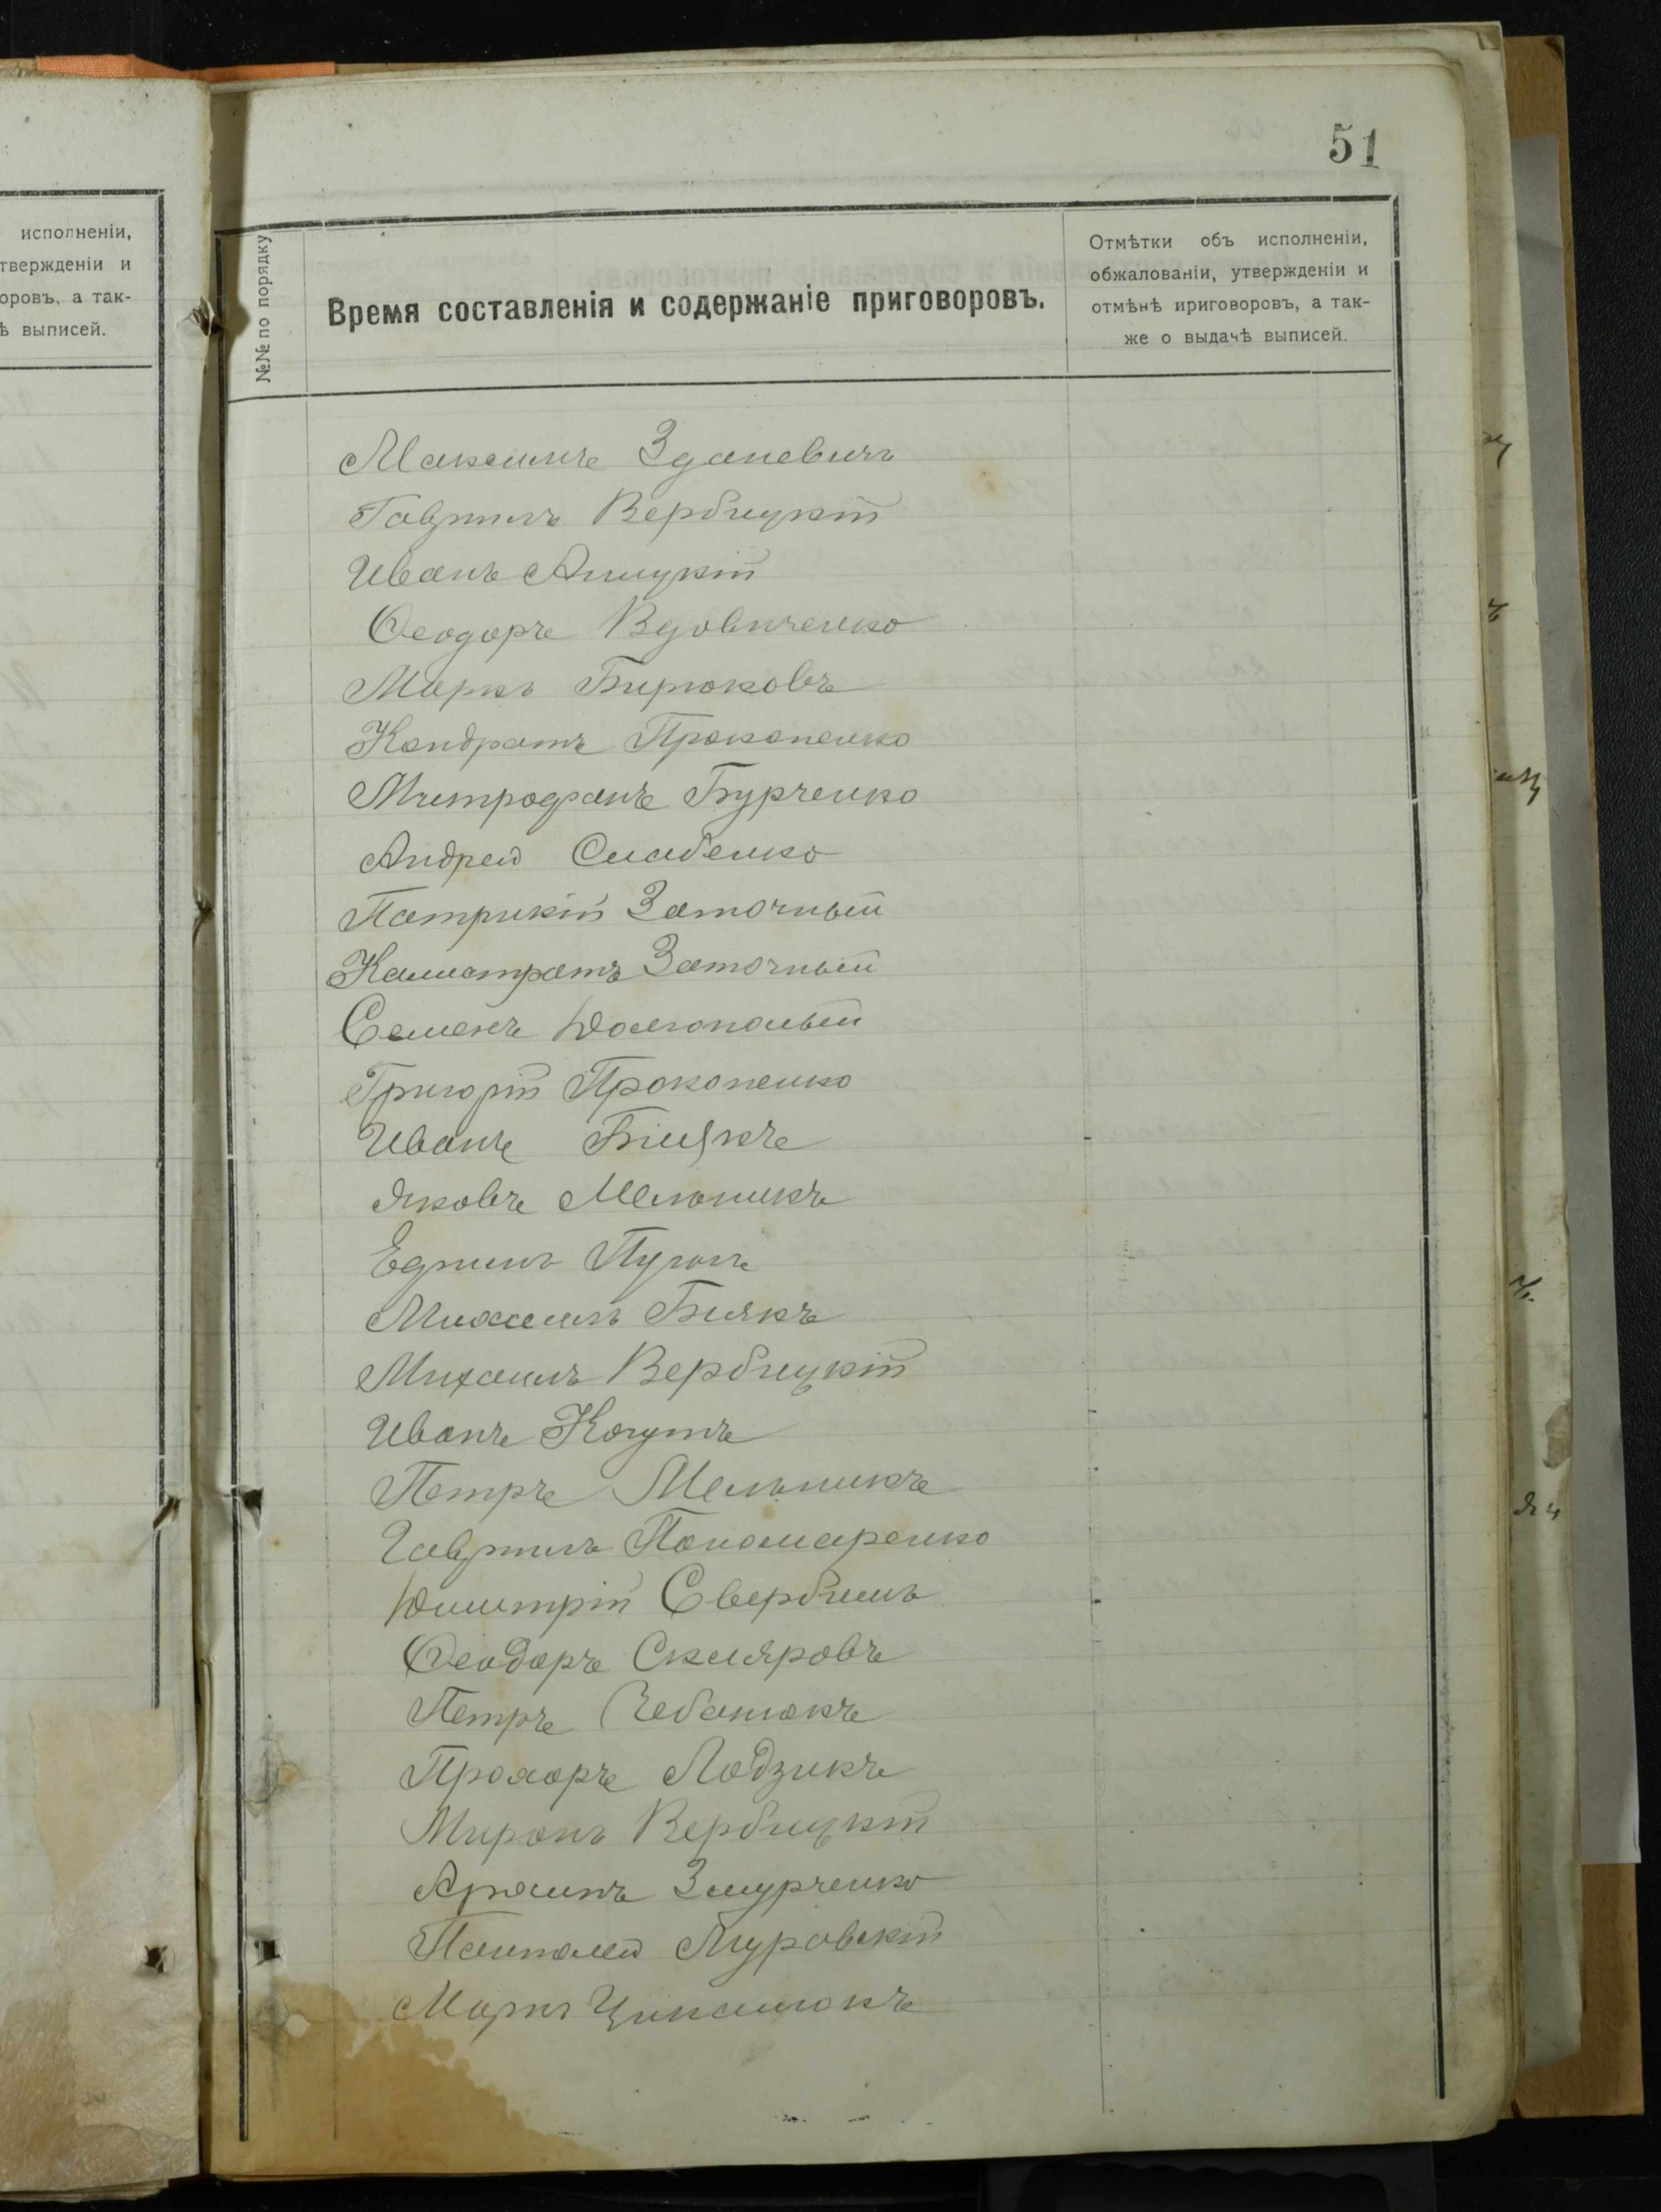 исполненіи,
твержденіи и
оровъ, а так-
ѣ выписей.
51
№№ по порядку
Время составленія и содержаніе приговоровъ.
Отмѣтки объ исполненіи,
обжалованіи, утвержденіи и
отмѣнѣ ириговоровъ, а так-
же о выдачѣ выписей.
Максимъ Зданевичъ
Гавріилъ Вербицкій
Иванъ
Ѳеодоръ Вдовиченко
Маркъ Бирюковъ
Кондратъ Прокопенко
Митрофанъ Бурченко
Андрей Слабенко
Патрикій Заточный
Калистратъ Заточный
Семенъ Долгополый
Григорій Прокопенко
Иванъ
Яковъ Мельникъ
Михаилъ Билякъ
Михаилъ Вербицкій
Иванъ Когутъ
Петръ Мельникъ
Гавріилъ Пономаренко
Димитрій Свербиль
Ѳеодоръ Скляровъ
Петръ Чебанюкъ
Прохоръ Лодзикъ
Миронъ Вербицкій
Змурченко
Муровскій
Маркъ